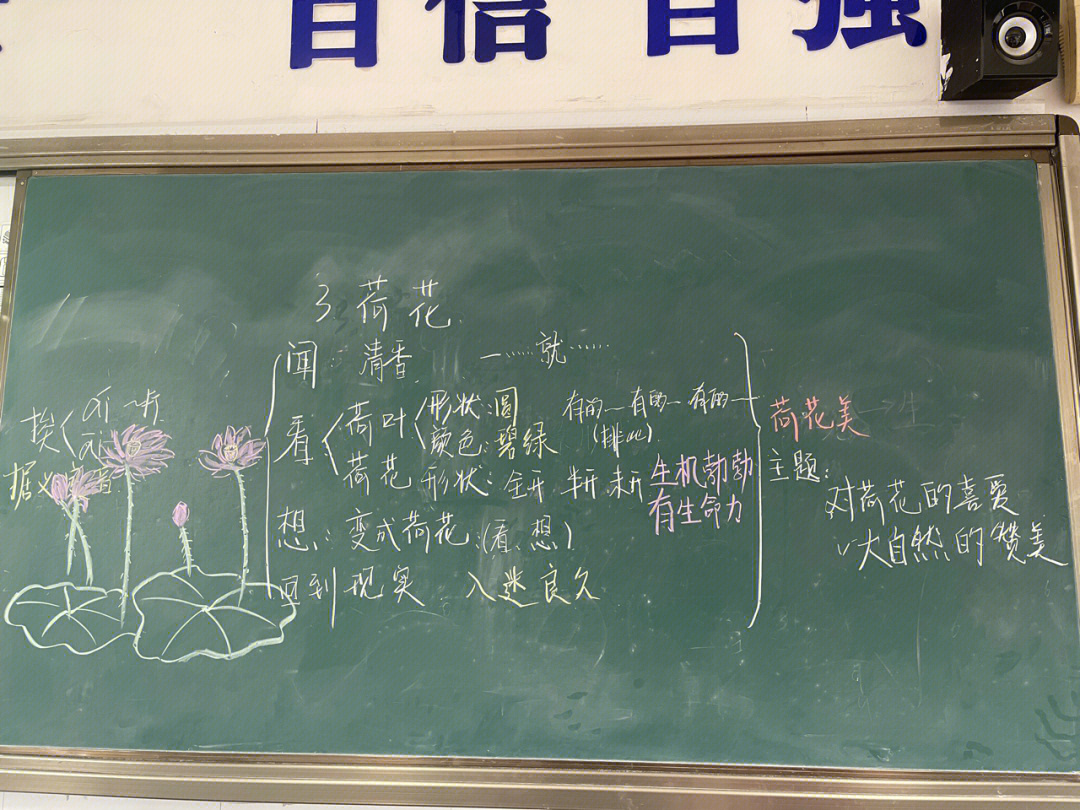 自信 自强
3 荷花
闻:清香 一……就……
挨
据义
看 荷叶 形状:圆 有的 有的 有的
颜色:碧绿 (排比)
荷花 形状:全开 半开 未开 生机勃勃
有生命力
想:变成荷花(看、想)
回到现实 入迷良久
荷花美
主题:
对荷花的喜爱
大自然的赞美